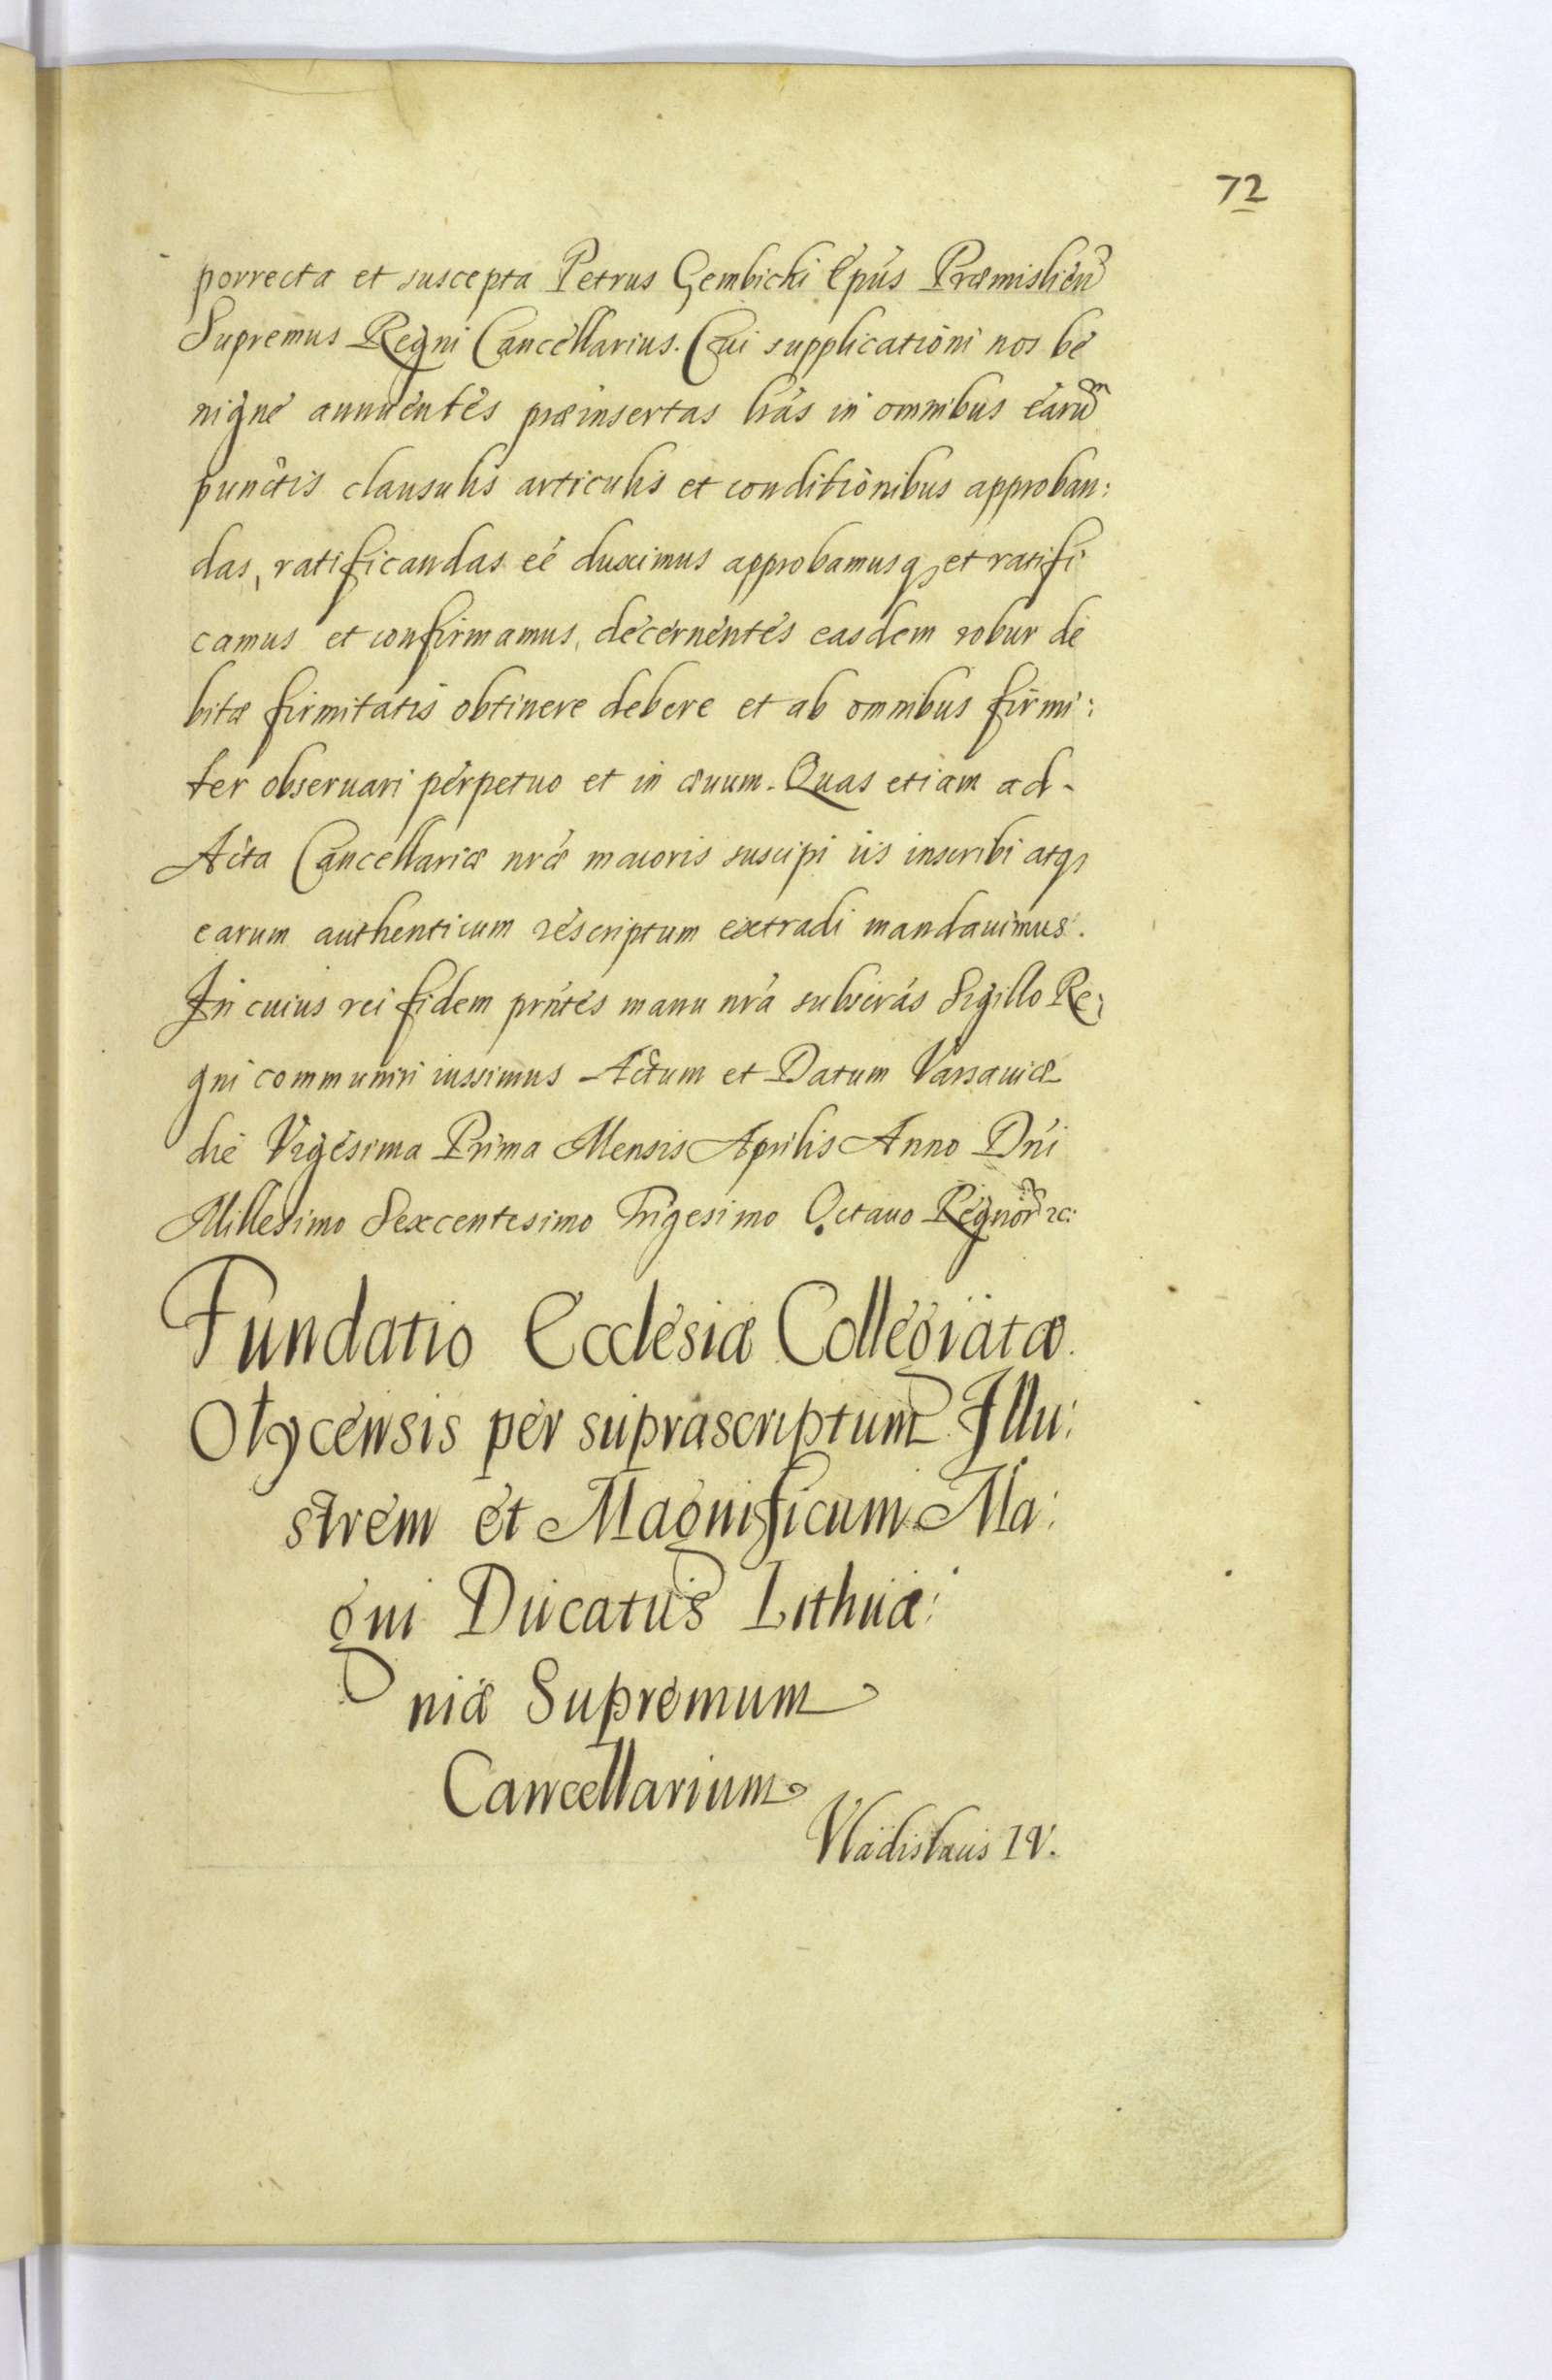 72
porrecta et suscepta Petrus Gembichi Epus Præmislien
Supremus Regni Cancellarius. Cui supplicationi nos be
nigne annuentes præinsertas lras in omnibus earu
punctis clausulis articulis et conditionibus approban:
das, ratificandas eé duximus approbamusq, et ratifi
camus et confirmamus, decernentes easdem robur de
bitæ firmitatis obtinere debere et ab omnibus firmi:
ter observari perpetuo et in ævum. Quas etiam ad
Acta Cancellariæ nræ maioris suscipi iis inscribi atq,
earum authenticum rescriptum extradi mandauimus.
In cuius rei fidem prntes manu nra subscras Sigillo Re:
gni communiri iussimus Actum et Datum Varsauiæ
die Vigesima Prima Mensis Aprilis Anno Dni
Millesimo Sexcentesimo Trigesimo Octauo Regnor &c:
Fundatio Ecclesiæ Collegiatæ
Olycensis per suprascriptum Illu:
strem et Magnificum Ma:
gni Ducatus Lithua:
niæ Supremum
Cancellarium
Vladislaus IV.